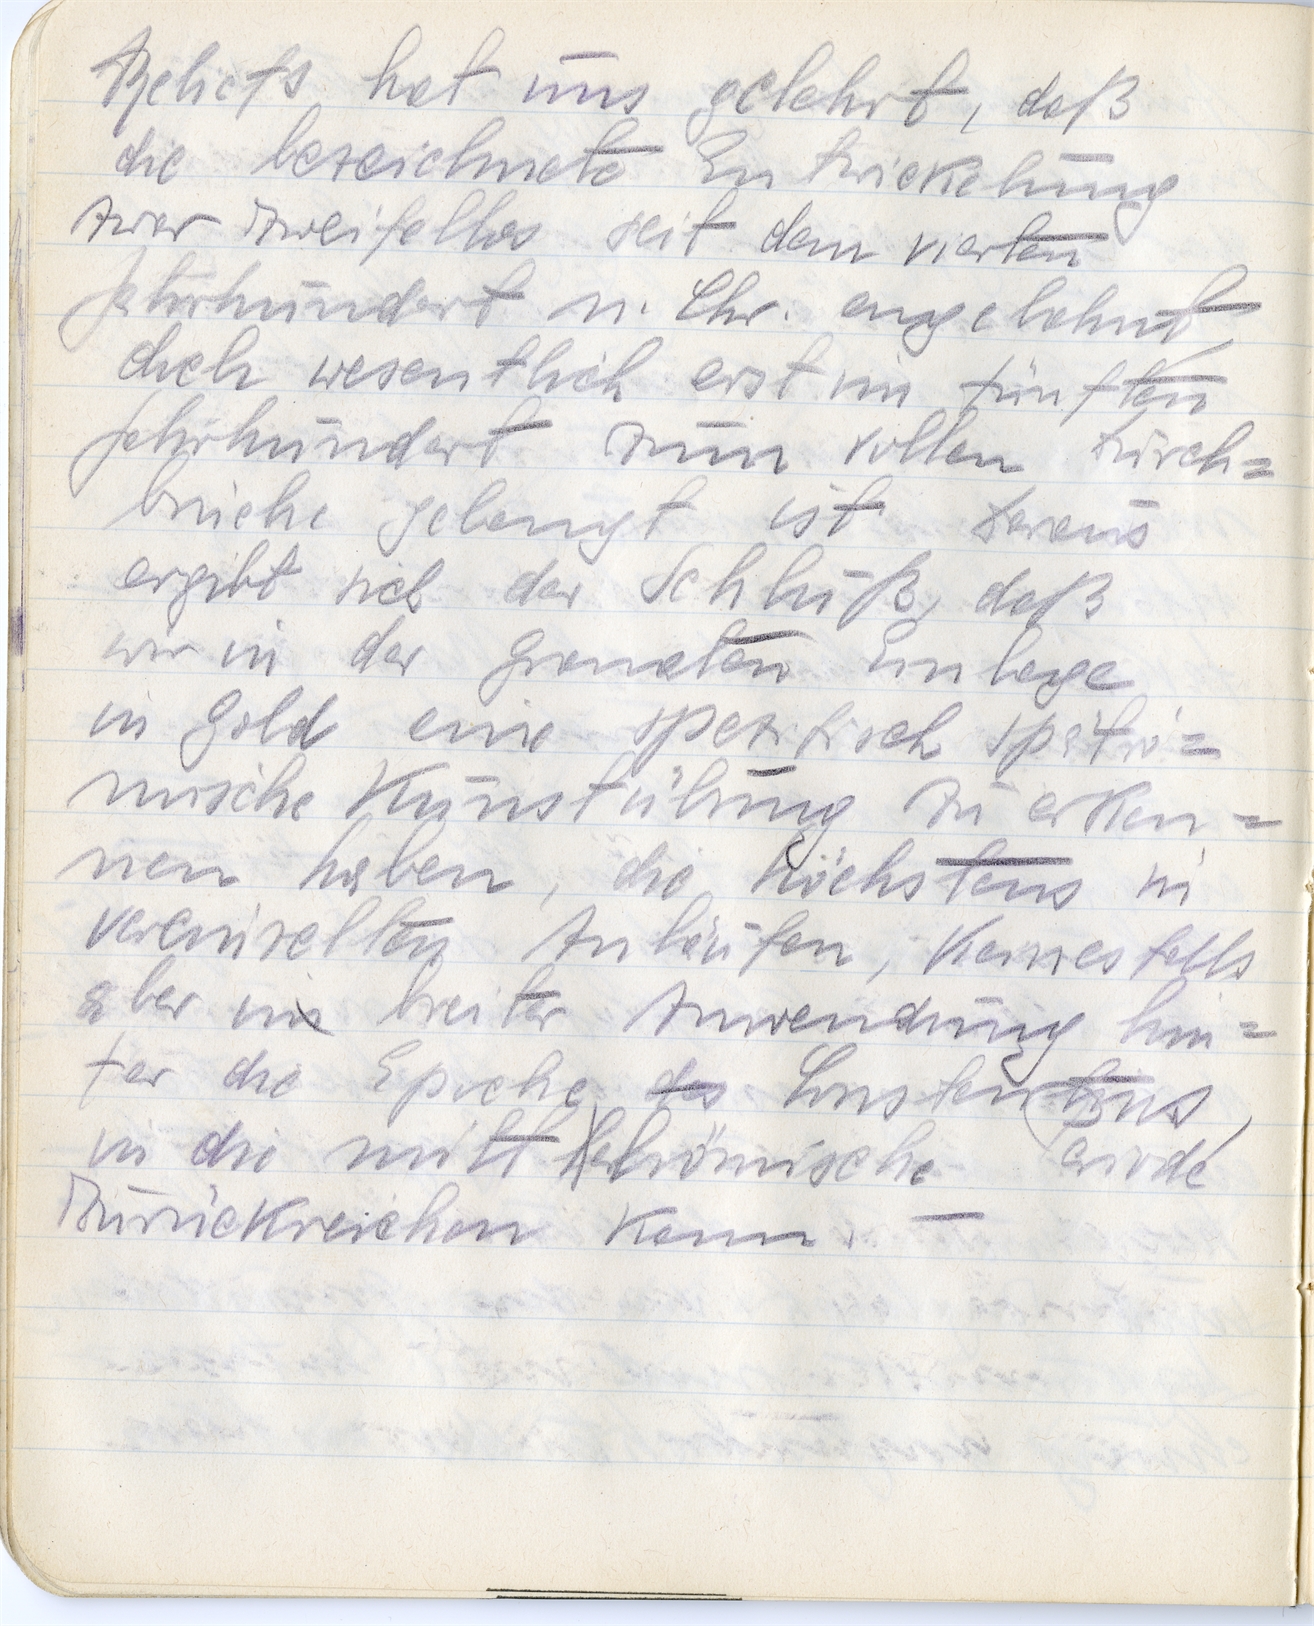 Reliefs hat uns gelehrt, daß
die bezeichnete Entwickelung
zwar zweifellos seit dem vierten
Jahrhundert n. Chr. angebahnt,
doch wesentlich erst im fünften
Jahrhundert zum vollen Durch=
bruche gelangt ist Daraus
ergibt sich der Schluß, daß
wir in der Granaten Einlage
in Gold eine spezifisch spätrö=
mische Kunstübung zu erken=
nen haben, die höchstens in
vereinzelten Anläufen, keinesfalls
aber in breiter Anwendung hin=
ter die Epoche des Constantins,
in die mittelrömische
zurückreichen kann. —